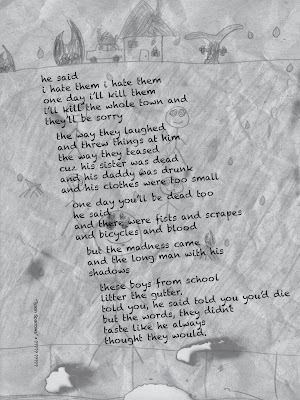 he said
i hate them i hate them
one day i'll kill them
i'll kill the whole town and
they'll be sorry
the way they laughed
and threw things at him
the way they teased
cuz his sister was dead
and his daddy was drunk
and his clothes were too small
one day you'll be dead too
he said
and there were fists and scrapes
and bicycles and blood
but the madness came
and the long man with his
shadows
these boys from school
litter the gutter,
told you, he said told you you'd die
but the words, they didn't
taste like he always
thought they would.